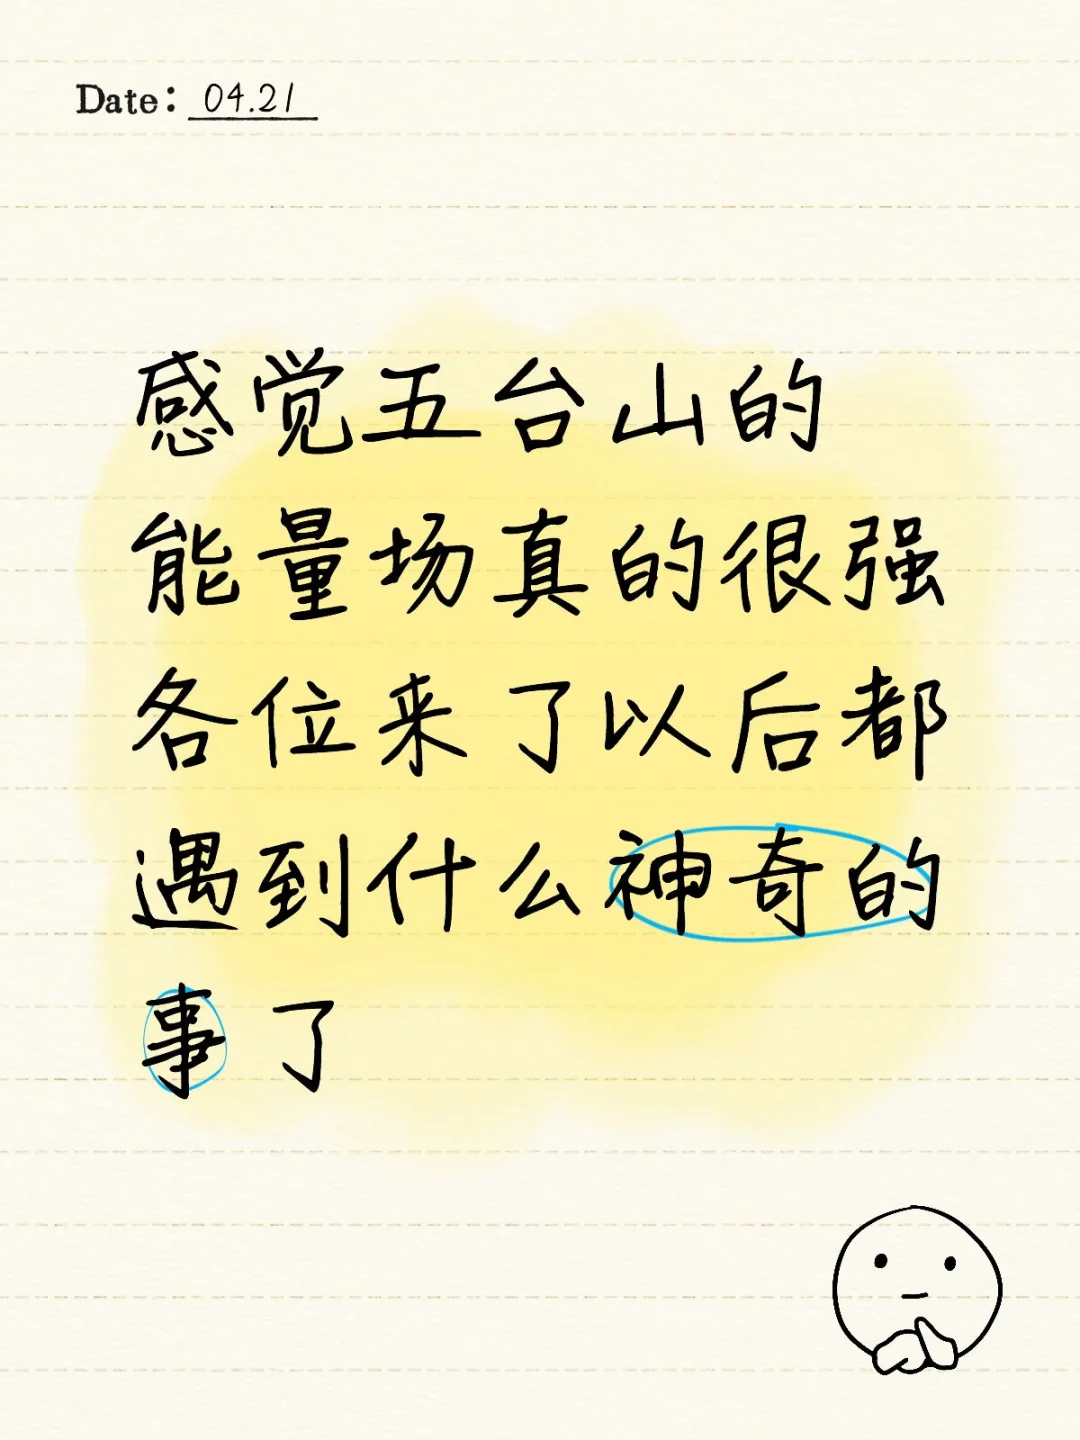 Date: 04.21
感觉五台山的
能量场真的很强
各位来了以后都
遇到什么神奇的
事了